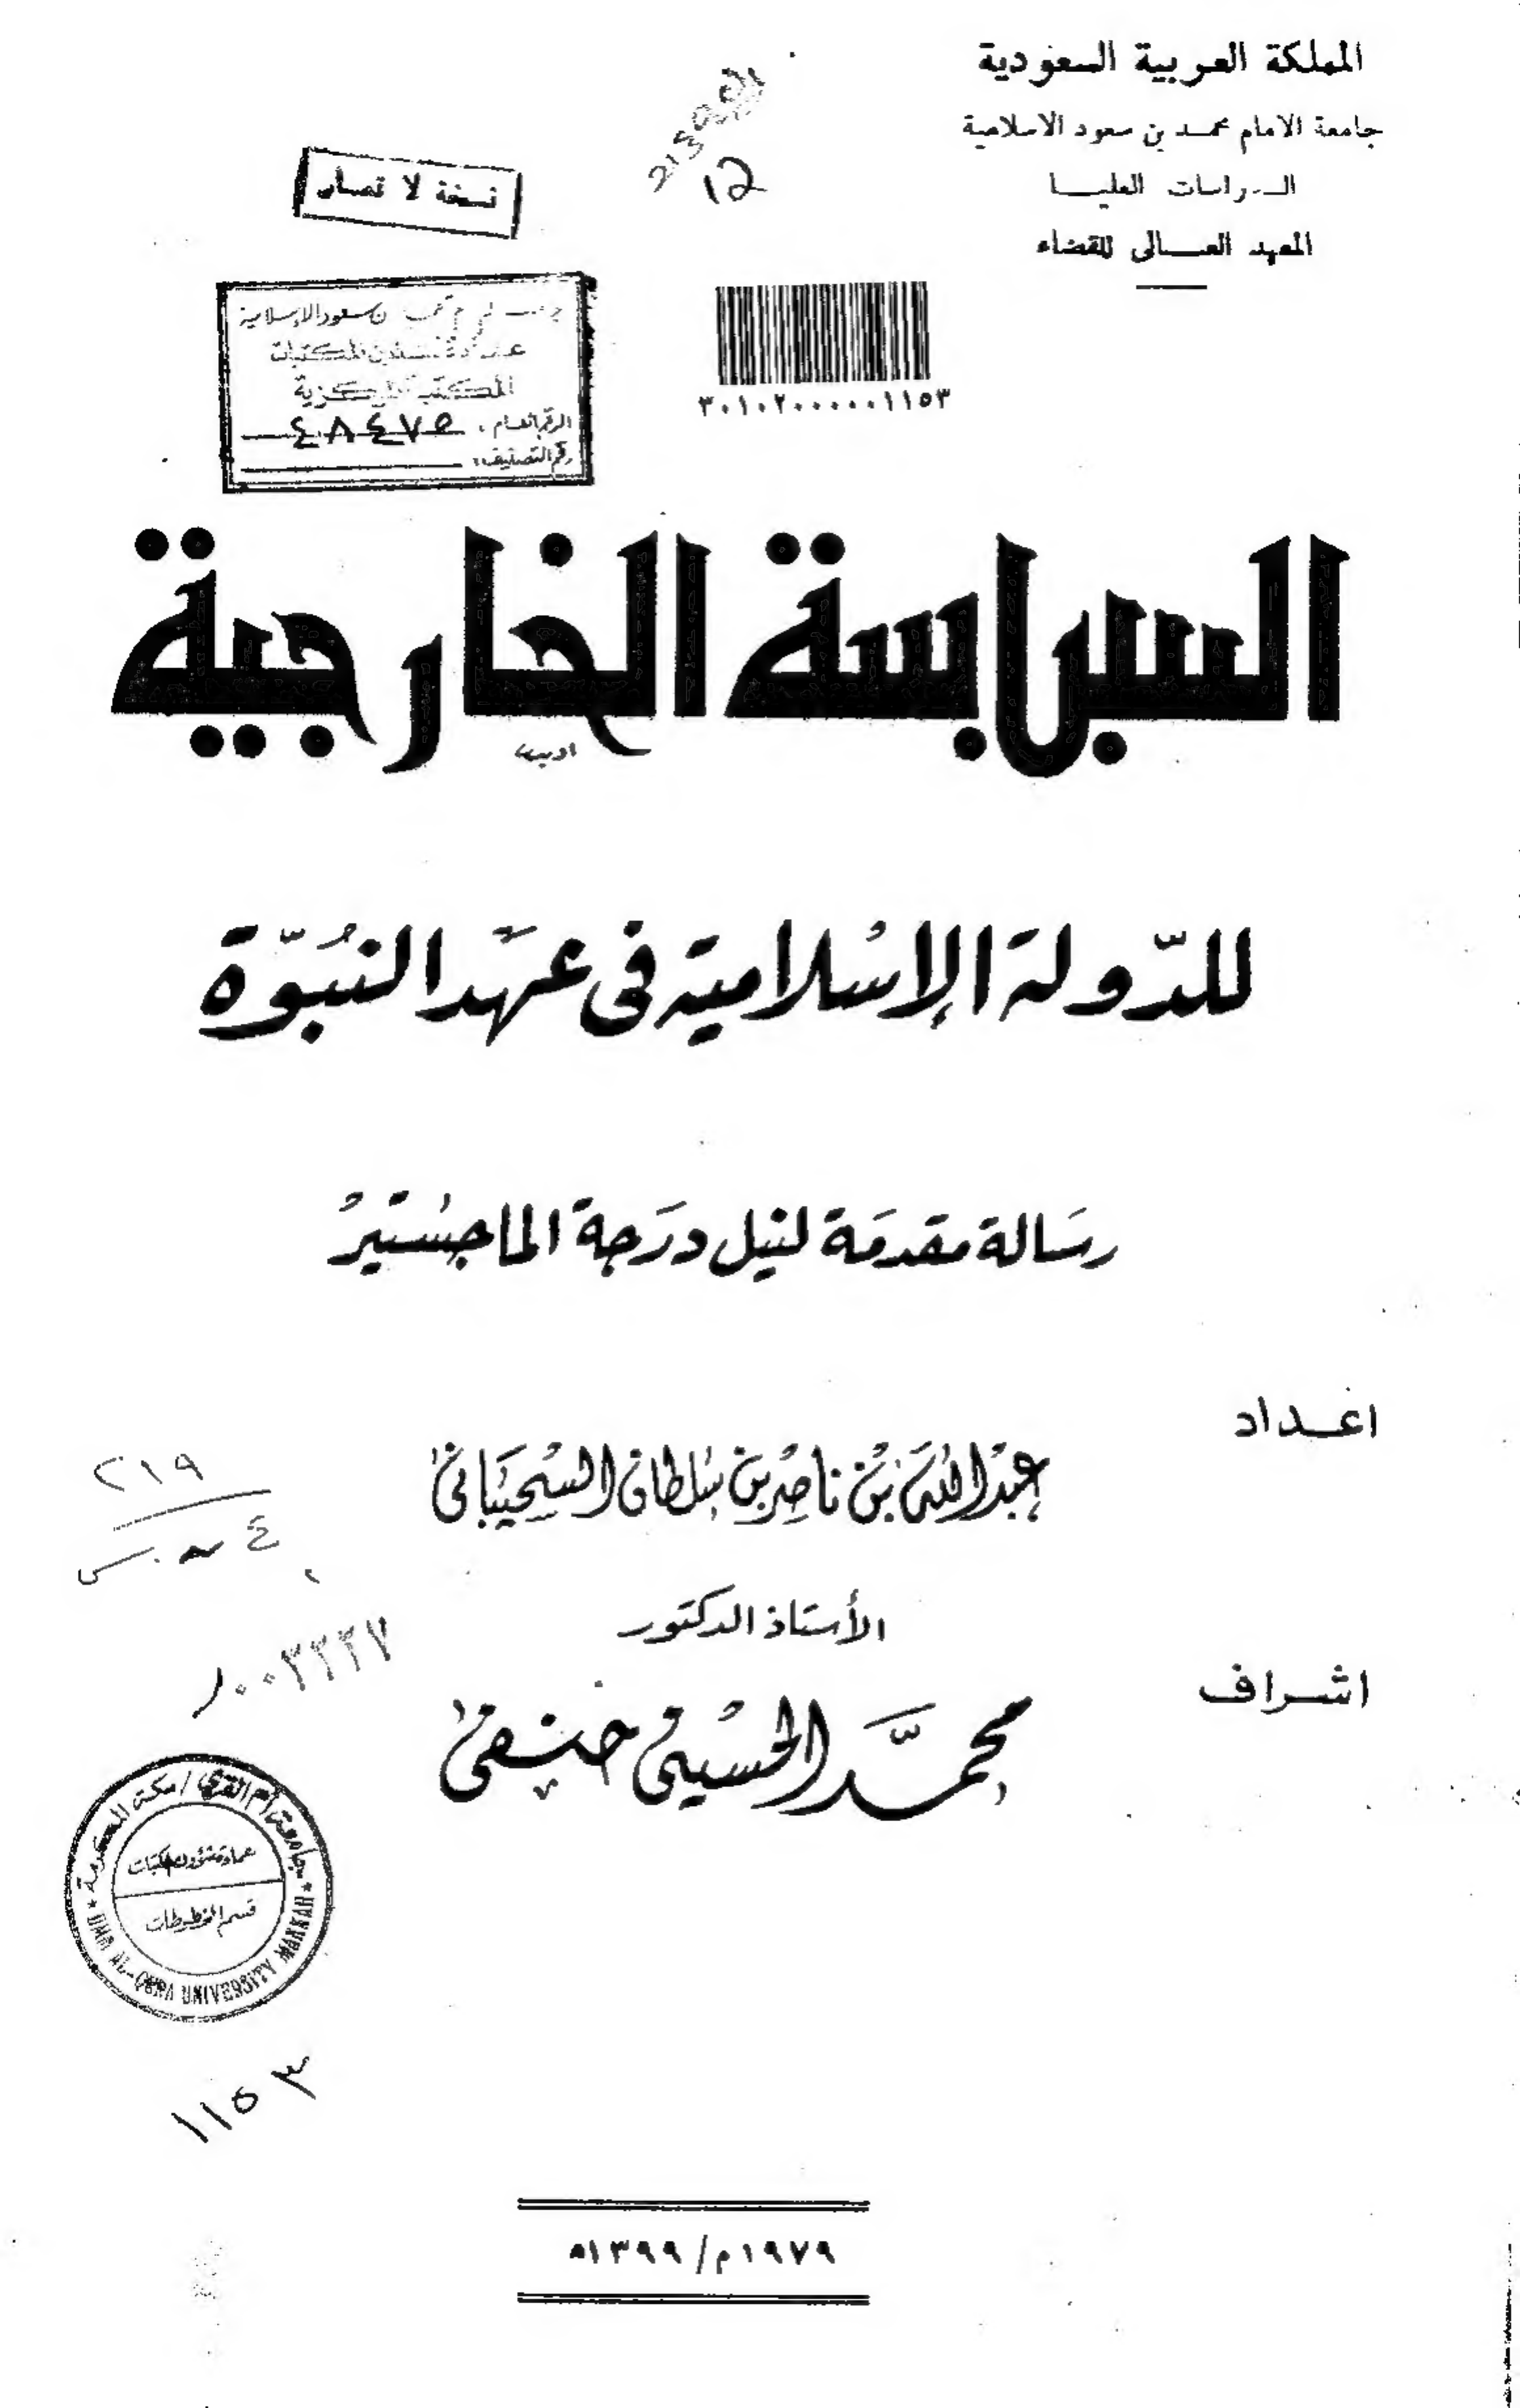 المملكة العربية السعودية
جامعة الامام محمد بن سعود الاسلامية
الدراسات العليا
المعهد العالى للقضاء
12
نسخة لا تصار
ن سعود الإسلامية
المكتبة المركزية
الرقم العام : ٤٨٤٧٥
رقم التصنيف :
٣٠١٠٢٠٠٠٠٠١١٥٣
السياسة الخارجية
للدّولة الإسْلامية فى عهْد النبُوّة
رسَالة مقدمَة لنيل درَجة الماجسْتيرُ
اعداد
عبْد اللّه بْن ناصِر بن سُلطان السّحيْبانى
٢١٩
٤
الأستاذ الدكتور
اشراف
محمَّد الحسيْنى حنفى
١٠٠٣٢٢٧
جامعة أم القرى / مكة المكرمة
عمادة شؤون المكتبات
قسم المخطوطات
UMM AL-QURA UNIVERSITY MAKKAH
١١٥٣
١٩٧٩م/١٣٩٩ه